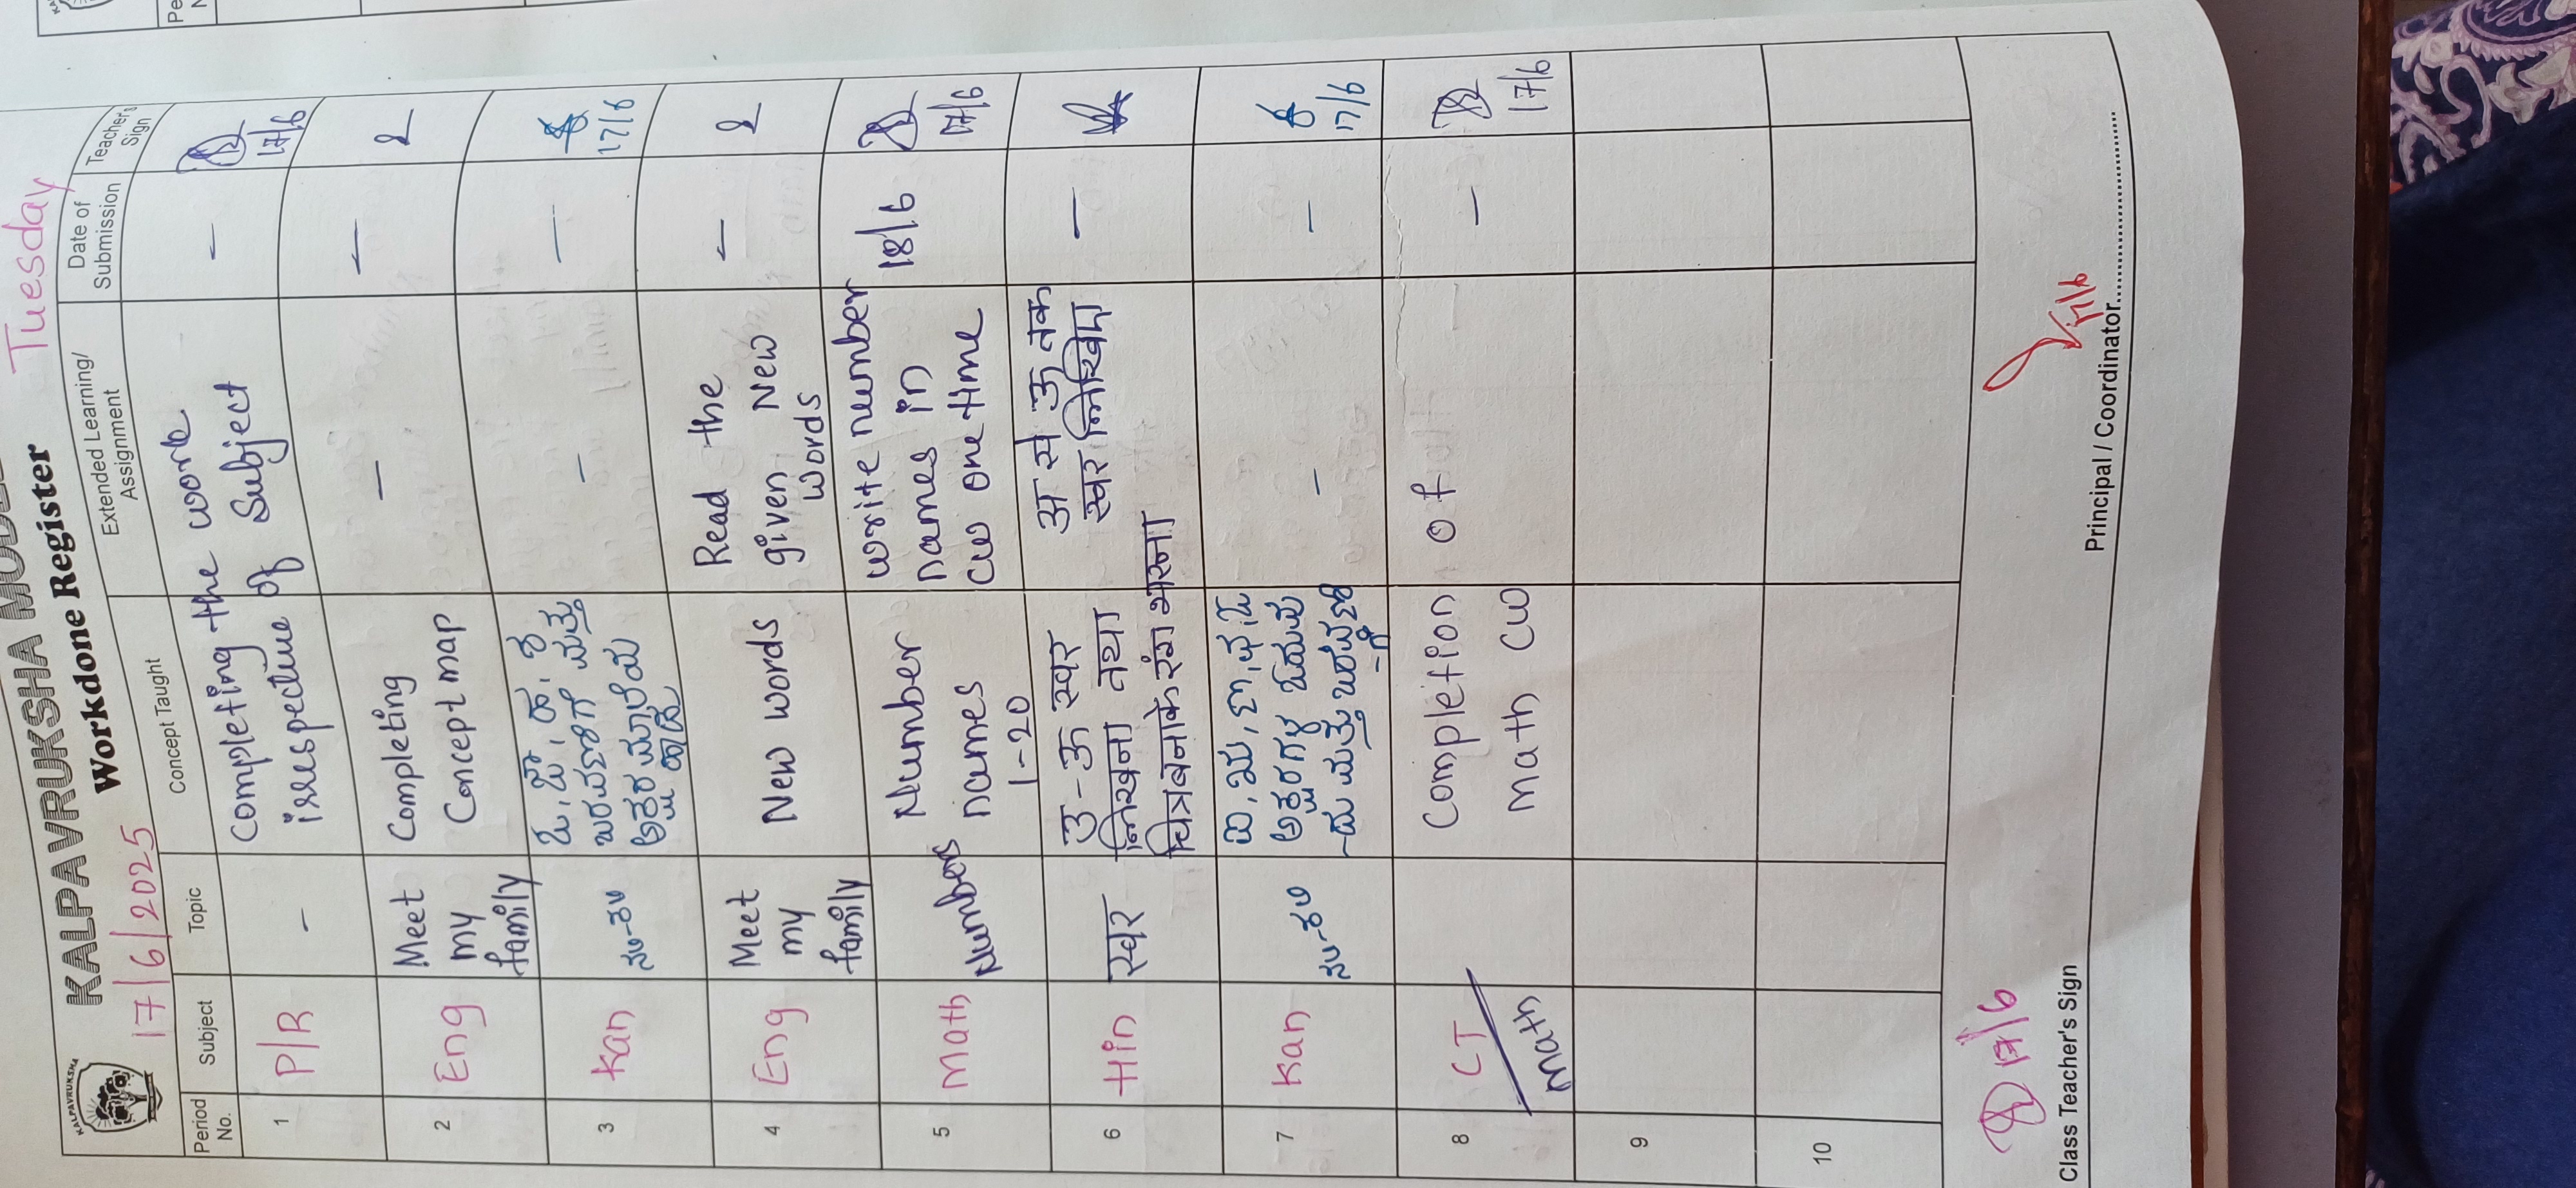 KALPAVRUKSHA
KALPAVRUKSHA
Workdone Register
17/6/2025
Tuesday
Period No.
Subject
Topic
Concept Taught
Extended Learning/ Assignment
Date of Submission
Teacher's Sign
1
P/R
–
Completing the work
irrespective of subject
–
17/6
2
Eng
Meet
my
family
Completing
Concept map
–
–
3
Kan
ಬರವಣಿಗೆ ಮತ್ತು
–
–
17/6
4
Eng
Meet
my
family
New words
Read the
given New
words
–
5
Math
Numbers
Number
names
1-20
write number
names in
cw one time
18/6
17/6
6
Hin
स्वर
उ-ऊ स्वर
लिखना तथा
चित्र बनाके रंग भरना
अ से ऊ तक
स्वर लिखिए
–
7
Kan
ಅಕ್ಷರಗಳ
–
–
17/6
8
CT/
Math
Completion of
math cw
–
17/6
9
10
17/6
Class Teacher's Sign
17/6
Principal / Coordinator